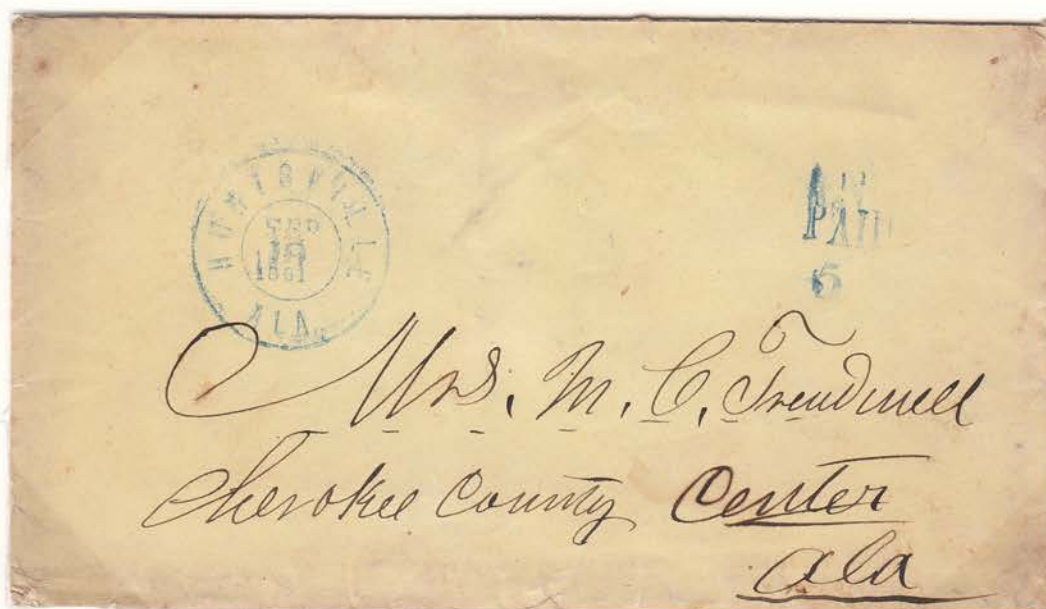 HUNTSVILLE
SEP
1861
ALA.
PAID
5
Mrs. M. C. Treadwell
Cherokee County Center
Ala